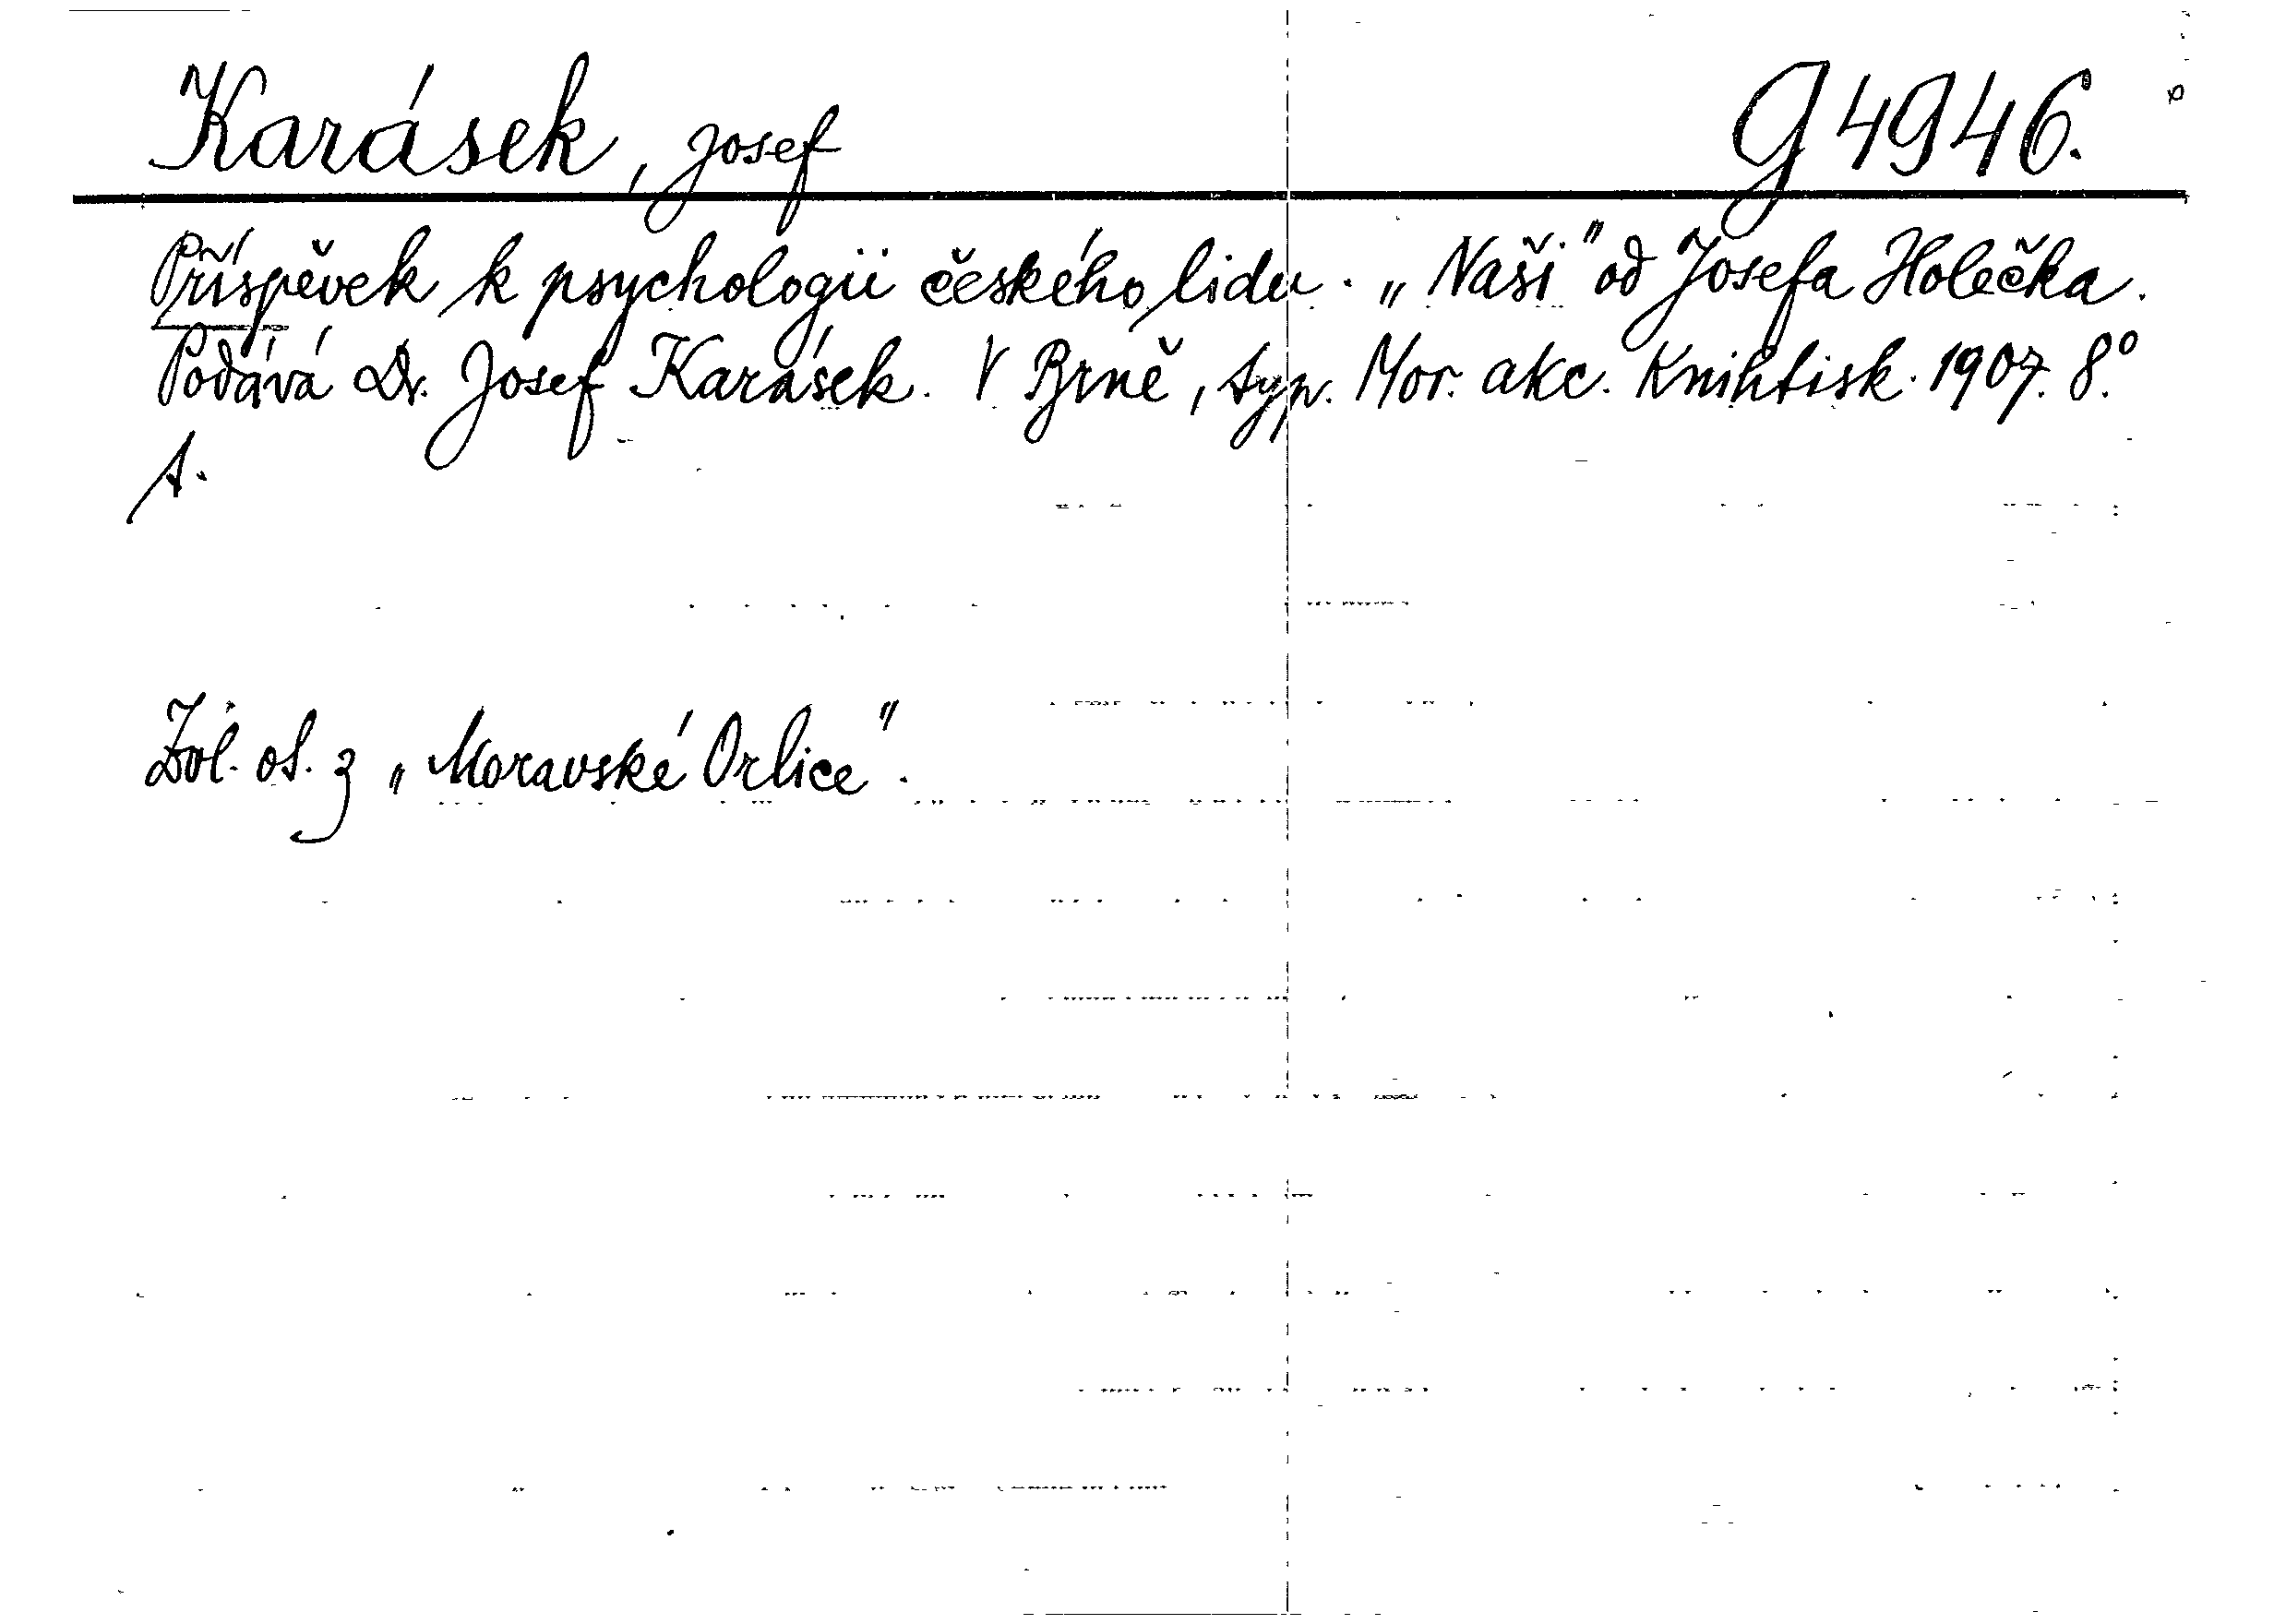 Karásek, Josef G 4946.
Příspěvek k psychologii českého lidu. „Naši" od Josefa Holečka.
Podává Dr. Josef Karásek. V Brně, typ. Mor. akc. Knihtisk. 1907. 8.°
Zvl. ot. z „Moravské Orlice".